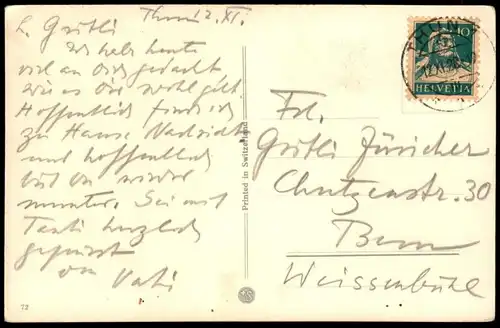 Thun 12. XI.
L. Gritli
Ich habe heute
viel an Dich gedacht
wie es Dir wohl geht.
Hoffentlich finde ich
zu Hause Nachricht
und hoffentlich
bist Du wieder
munter. Sei mit
Tanti herzlich
gegrüsst
von Vati
72
Printed in Switzerland
THUN
10
HELVETIA
Frl.
Gritli Züricher
Chutzenstr. 30
Bern
Weissenbühl